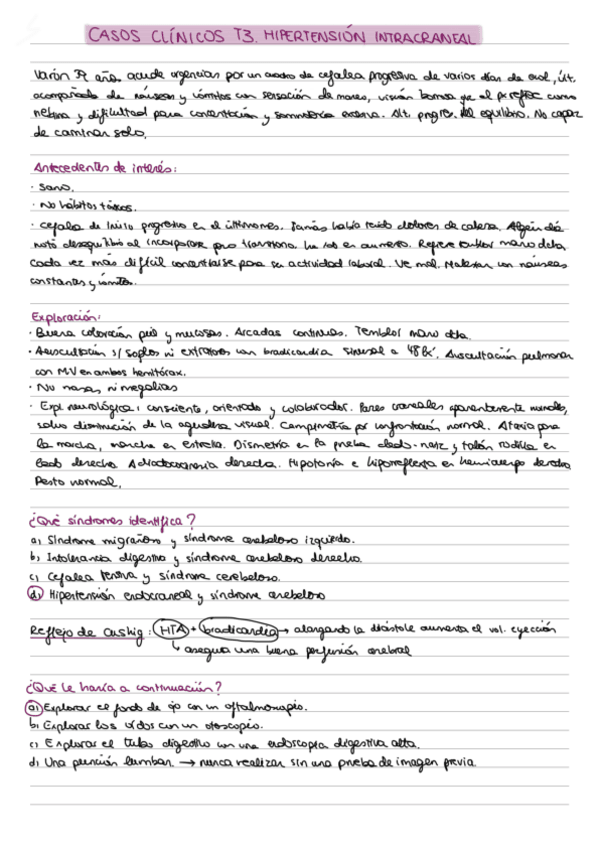 CASOS CLÍNICOS T3. HIPERTENSIÓN INTRACRANEAL
Varón 39 años acude urgencias por un cuadro de cefalea progresiva de varios días de evol, últ.
acompañado de náuseas y vómitos con sensación de mareo, visión borrosa que el px refiere como
neblina y dificultad para concentración y somnolencia extrema. Alt. progres. del equilibrio. No capaz
de caminar solo.
Antecedentes de interés:
· Sano.
· No hábitos tóxicos.
· Cefalea de inicio progresivo en el último mes. Jamás había tenido dolores de cabeza. Algún día
notó desequilibrio al incorporarse pero transitorio. ha ido en aumento. Refiere temblor mano dcha.
Cada vez más difícil concentrarse para su actividad laboral. Ve mal. Malestar con náuseas
constantes y vómitos.
Exploración:
· Buena coloración piel y mucosas. Arcadas continuas. Temblor mano dcha.
· Auscultación s/ soplos ni extratonos con bradicardia sinusal a 48 lx'. Auscultación pulmonar
con MV en ambos hemitórax.
· No masas ni megalias
· Expl. neurológica: consciente, orientado y colaborador. Pares craneales aparentemente normales,
salvo disminución de la agudeza visual. Campimetría por confrontación normal. Ataxia para
la marcha, marcha en estrella. Dismetría en la prueba dedo-nariz y talón rodilla en
lado derecho. Adiadococinesia derecha. Hipotonía e hiporreflexia en hemicuerpo derecho
Resto normal.
¿Qué síndromes identifica?
a) Síndrome migrañoso y síndrome cerebeloso izquierdo.
b) Intolerancia digestiva y síndrome cerebeloso derecho.
c) Cefalea tensiva y síndrome cerebeloso.
d) Hipertensión endocraneal y síndrome cerebeloso
Reflejo de Cushig: HTA + bradicardia → alargando la diástole aumenta el vol. eyección
↳ asegura una buena perfusión cerebral
¿Qué le haría a continuación?
a) Explorar el fondo de ojo con un oftalmoscopio.
b) Explorar los oídos con un otoscopio.
c) Explorar el tubo digestivo con una endoscopia digestiva alta.
d) Una punción lumbar. → nunca realizar sin una prueba de imagen previa.